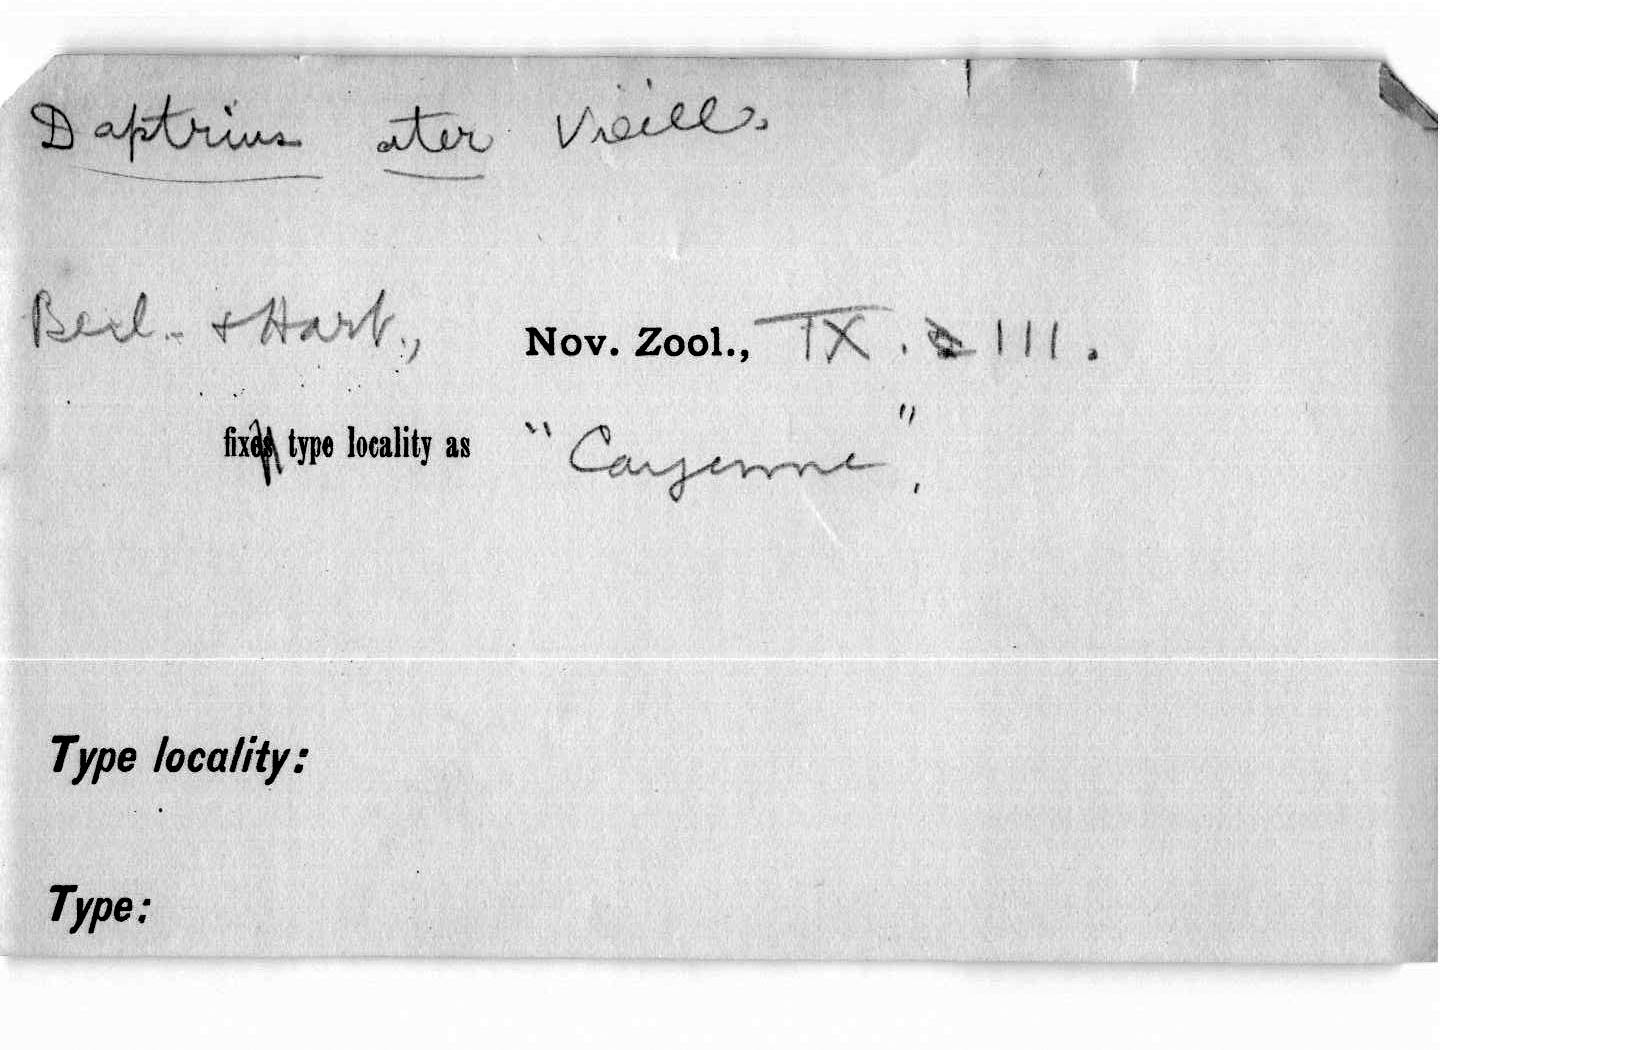 Daptrius ater Vieill.
Berl. & Hart., Nov. Zool., IX. 111.
fix type locality as "Cayenne",
Type locality:
Type: